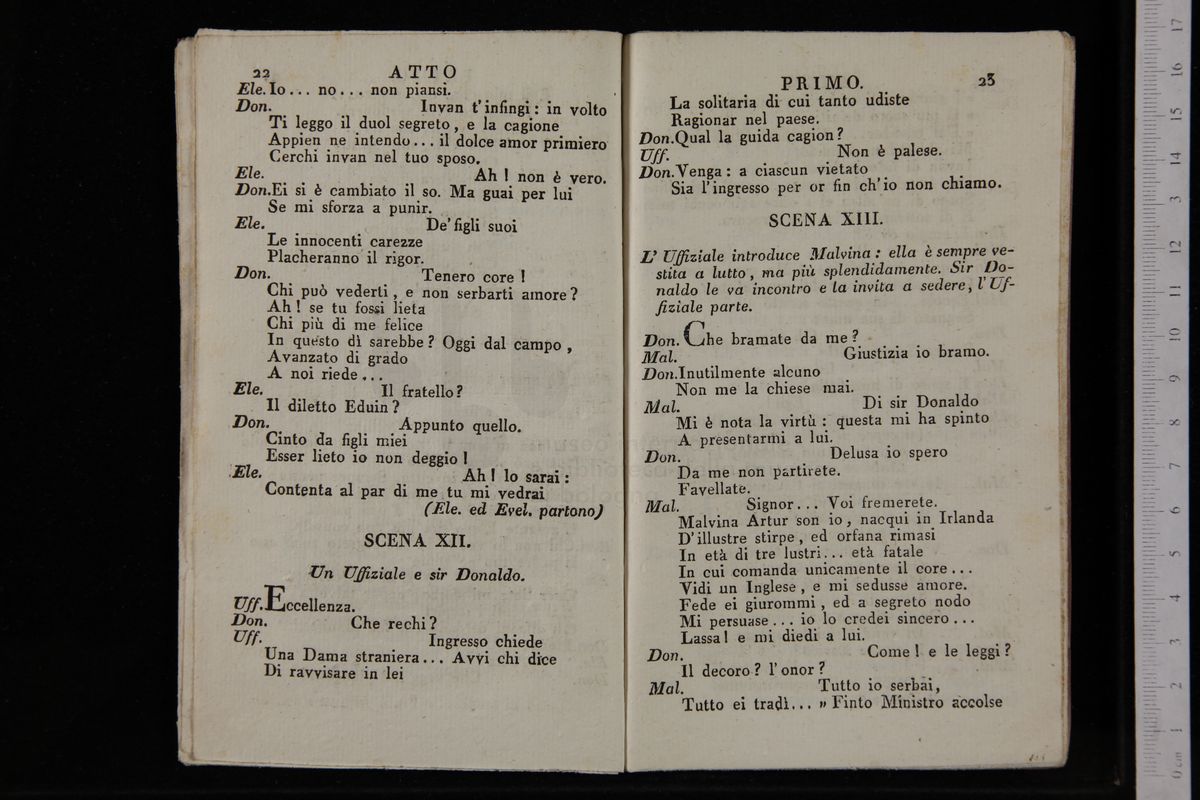 22 ATTO
Ele. Io... no... non piansi.
Don. Invan t'infingi: in volto
Ti leggo il duol segreto, e la cagione
Appien ne intendo... il dolce amor primiero
Cerchi invan nel tuo sposo.
Ele. Ah! non è vero.
Don. Ei si è cambiato il so. Ma guai per lui
Se mi sforza a punir.
Ele. De' figli suoi
Le innocenti carezze
Placheranno il rigor.
Don. Tenero core!
Chi può vederti, e non serbarti amore?
Ah! se tu fossi lieta
Chi più di me felice
In questo dì sarebbe? Oggi dal campo,
Avanzato di grado
A noi riede...
Ele. Il fratello?
Il diletto Eduin?
Don. Appunto quello.
Cinto da figli miei
Esser lieto io non deggio!
Ele. Ah! lo sarai:
Contenta al par di me tu mi vedrai
(Ele. ed Evel. partono)
SCENA XII.
Un Uffiziale e sir Donaldo.
Uff. Eccellenza.
Don. Che rechi?
Uff. Ingresso chiede
Una Dama straniera... Avvi chi dice
Di ravvisare in lei
PRIMO. 23
La solitaria di cui tanto udiste
Ragionar nel paese.
Don. Qual la guida cagion?
Uff. Non è palese.
Don. Venga: a ciascun vietato
Sia l'ingresso per or fin ch'io non chiamo.
SCENA XIII.
L' Uffiziale introduce Malvina: ella è sempre ve-
stita a lutto, ma più splendidamente. Sir Do-
naldo le va incontro e la invita a sedere, l'Uf-
fiziale parte.
Don. Che bramate da me?
Mal. Giustizia io bramo.
Don. Inutilmente alcuno
Non me la chiese mai.
Mal. Di sir Donaldo
Mi è nota la virtù: questa mi ha spinto
A presentarmi a lui.
Don. Delusa io spero
Da me non partirete.
Favellate.
Mal. Signor... Voi fremerete.
Malvina Artur son io, nacqui in Irlanda
D'illustre stirpe, ed orfana rimasi
In età di tre lustri... età fatale
In cui comanda unicamente il core...
Vidi un Inglese, e mi sedusse amore.
Fede ei giurommi, ed a segreto nodo
Mi persuase... io lo credei sincero...
Lassa! e mi diedi a lui.
Don. Come! e le leggi?
Il decoro? l'onor?
Mal. Tutto io serbai,
Tutto ei tradì... » Finto Ministro accolse
0 cm 1 2 3 4 5 6 7 8 9 10 11 12 13 14 15 16 17